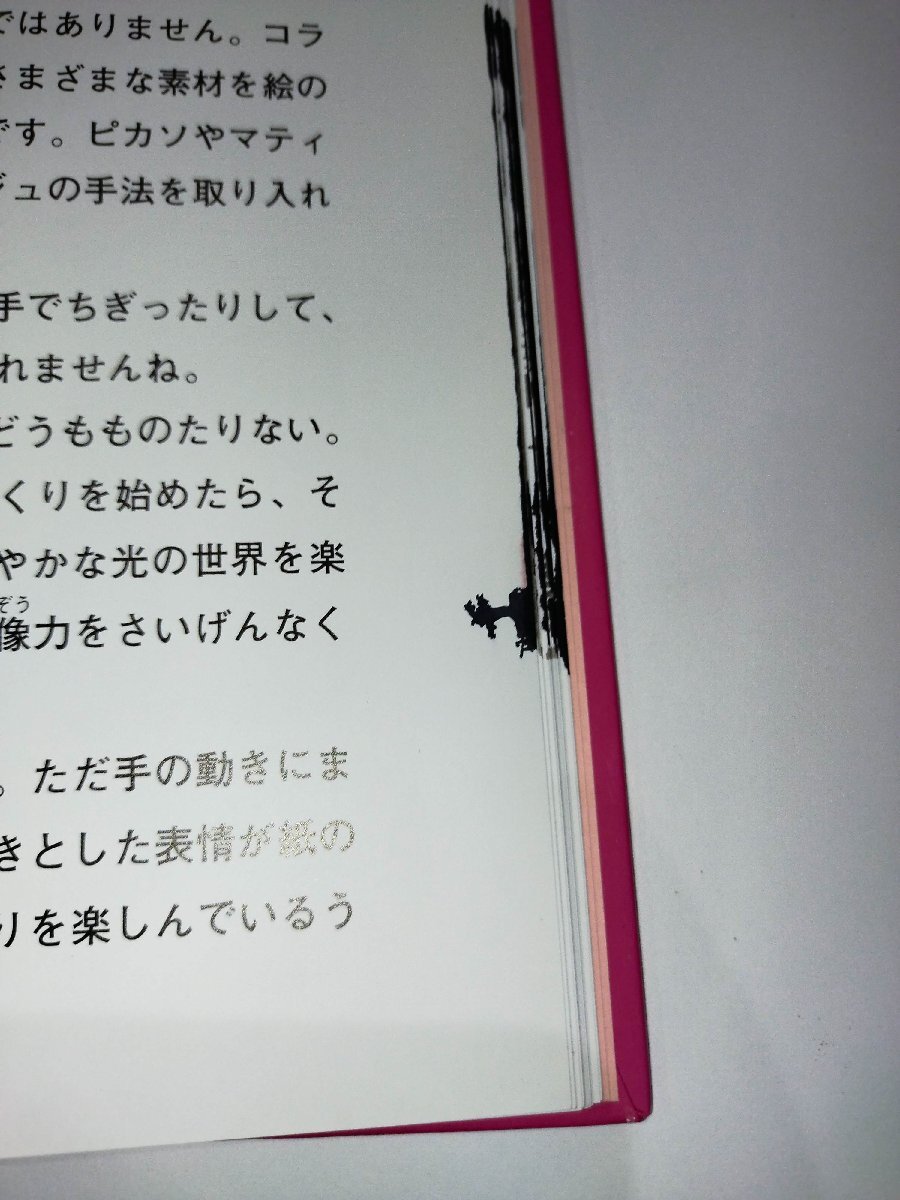 ではありません。コラ
さまざまな素材を絵の
です。ピカソやマティ
ジュの手法を取り入れ
手でちぎったりして、
れませんね。
どうもものたりない。
くりを始めたら、そ
やかな光の世界を楽
ぞう
像力をさいげんなく
。ただ手の動きにま
きとした表情が紙の
りを楽しんでいるう